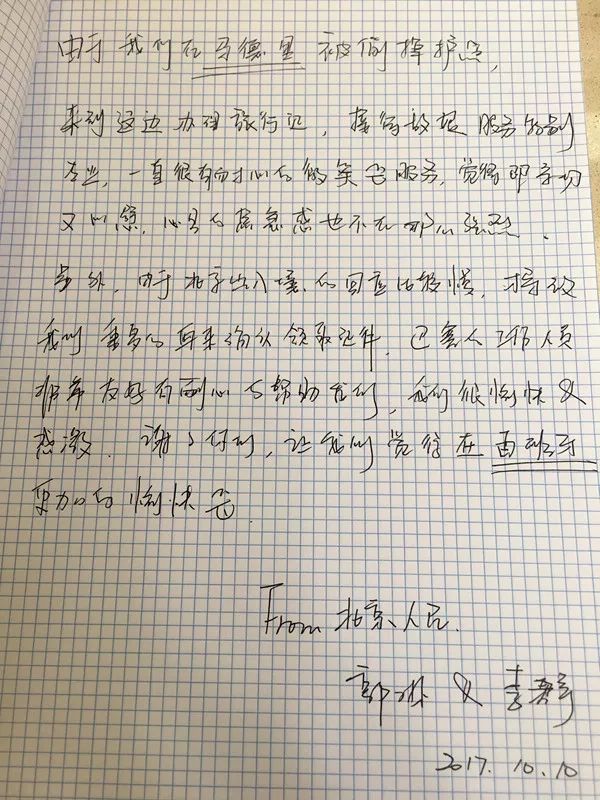 由于我们在马德里被偷掉护照，
来到这边办理旅行证，接待 服务特别
专业，一直很有耐心的 服务，觉得即亲切
又 ，心里的焦急感也不在那么强烈。
另外，由于北京出入境的回应比较慢，导致
我们 再来确认领取证件，已 工作人员
非常友好有耐心的帮助我们，我们很愉快&
感激。谢谢你们，让我们觉得在西班牙
更加的愉快
From 北京人民.
郭 & 李
2017. 10. 10